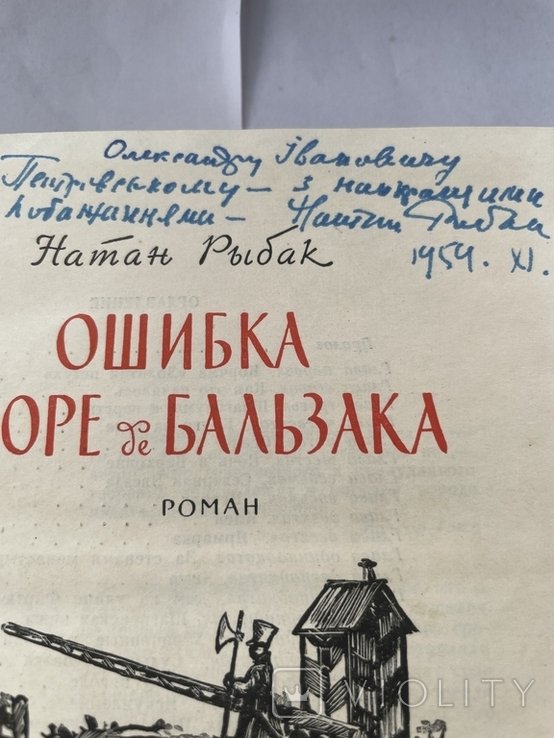 Олександру Івановичу
Петровському — з найкращими
побажаннями — Натан Рибак
1959. XI.
Натан Рыбак
ОШИБКА
ОРЕ де БАЛЬЗАКА
РОМАН
VIOLITY